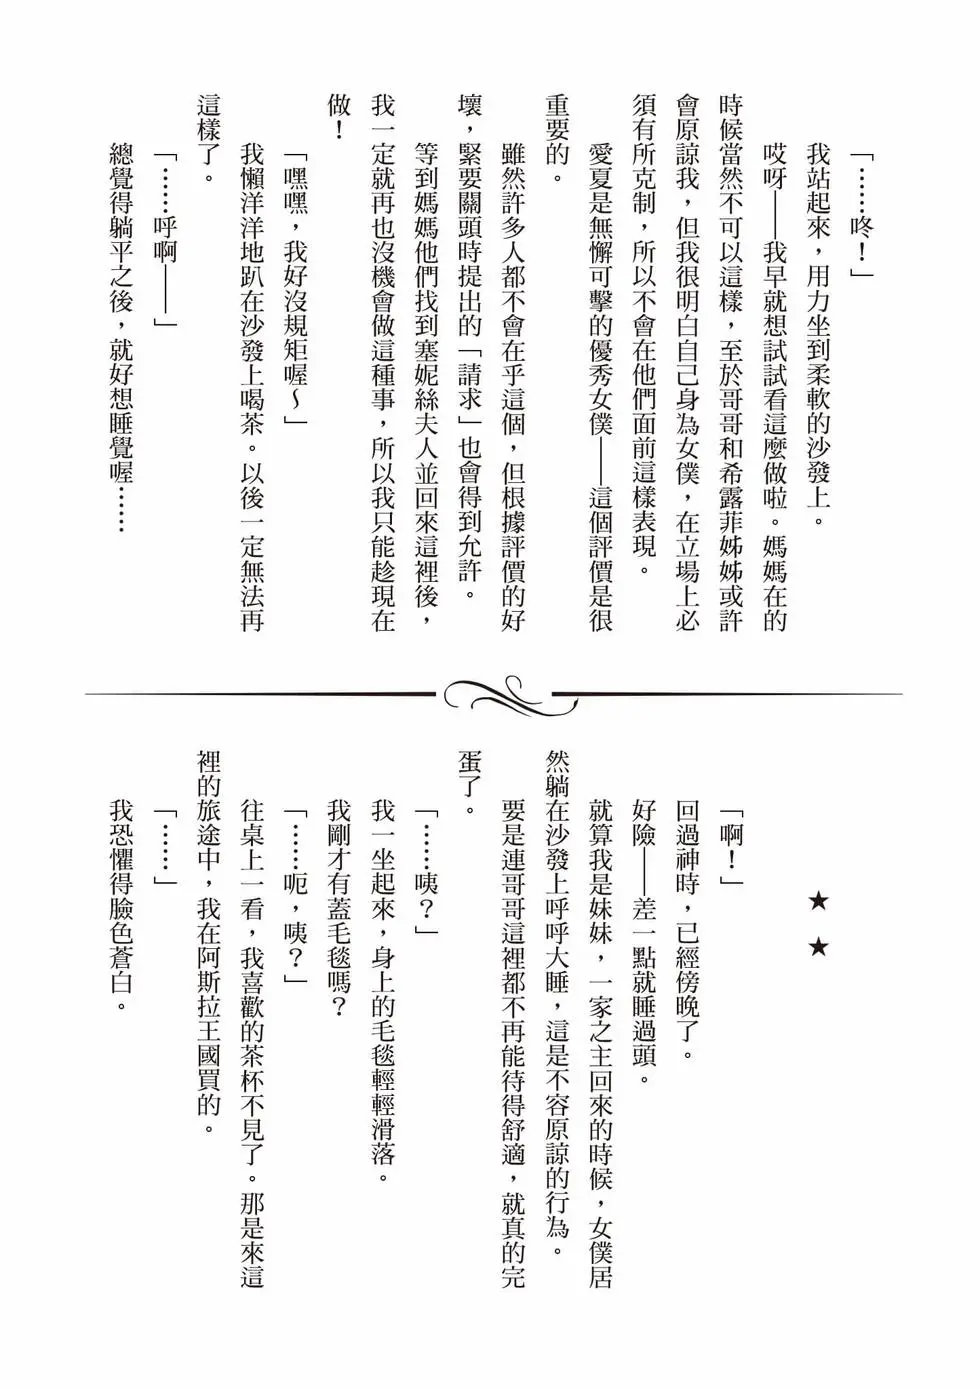 「……咚！」
我站起來，用力坐到柔軟的沙發上。
哎呀——我早就想試試看這麼做啦。媽媽在的
時候當然不可以這樣，至於哥哥和希露菲姊姊或許
會原諒我，但我很明白自己身為女僕，在立場上必
須有所克制，所以不會在他們面前這樣表現。
愛夏是無懈可擊的優秀女僕——這個評價是很
重要的。
雖然許多人都不會在乎這個，但根據評價的好
壞，緊要關頭時提出的「請求」也會得到允許。
等到媽媽他們找到塞妮絲夫人並回來這裡後，
我一定就再也沒機會做這種事，所以我只能趁現在
做！
「嘿嘿，我好沒規矩喔～」
我懶洋洋地趴在沙發上喝茶。以後一定無法再
這樣了。
「……呼啊——」
總覺得躺平之後，就好想睡覺喔……
★ ★
「啊！」
回過神時，已經傍晚了。
好險——差一點就睡過頭。
就算我是妹妹，一家之主回來的時候，女僕居
然躺在沙發上呼呼大睡，這是不容原諒的行為。
要是連哥哥這裡都不再能待得舒適，就真的完
蛋了。
「……咦？」
我一坐起來，身上的毛毯輕輕滑落。
我剛才有蓋毛毯嗎？
「……呃，咦？」
往桌上一看，我喜歡的茶杯不見了。那是來這
裡的旅途中，我在阿斯拉王國買的。
「……」
我恐懼得臉色蒼白。